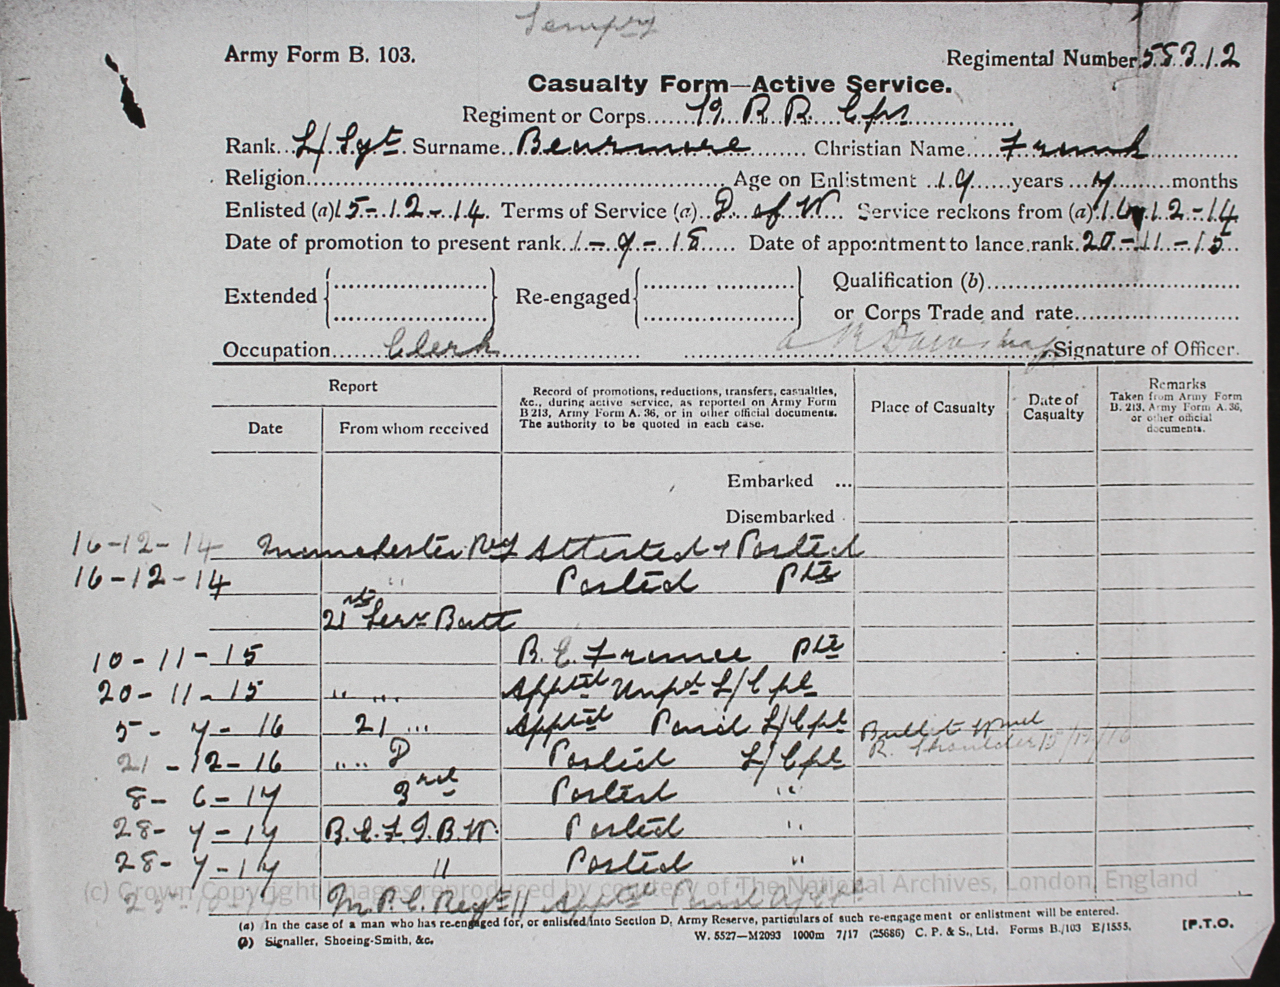 Tempy
Army Form B. 103.
Regimental Number 55312
Casualty Form—Active Service.
Regiment or Corps 19 R. B.
Rank L/Sgt Surname Bearmore Christian Name Frank
Religion Age on Enlistment 19 years 7 months
Enlisted (a) 15-12-14. Terms of Service (a) D. of W. Service reckons from (a) 16-12-14
Date of promotion to present rank 1-9-18 Date of appointment to lance rank 20-11-15
Extended Re-engaged Qualification (b)
or Corps Trade and rate
Occupation Clerk Signature of Officer.
Report Record of promotions, reductions, transfers, casualties, &c., during active service, as reported on Army Form B 213, Army Form A. 36, or in other official documents. The authority to be quoted in each case. Place of Casualty Date of Casualty Remarks Taken from Army Form B. 213, Army Form A. 36, or other official documents.
Date From whom received
Embarked ...
Disembarked
16-12-14 Manchester Regt Attested & Posted
16-12-14 " Posted Pte
21st Serv Batt
10-11-15 B.E. France Pte
20-11-15 " " Apptd Unpd L/Cpl
5-7-16 21 " Apptd Paid L/Cpl Bullet Wound
R. Shoulder 15/12/16
21-12-16 " " D Posted L/Cpl
8-6-17 3rd Posted "
28-7-17 B.E.F. I.B.W. Posted "
28-7-17 " Posted "
(c) Crown Copyright Images reproduced by courtesy of The National Archives, London, England
Regt 11 Apptd Paid
(a) In the case of a man who has re-engaged for, or enlisted into Section D, Army Reserve, particulars of such re-engagement or enlistment will be entered.
(b) Signaller, Shoeing-Smith, &c. W. 5527—M2093 1000m 7/17 (25686) C. P. & S., Ltd. Forms B./103 E/1555. [P.T.O.